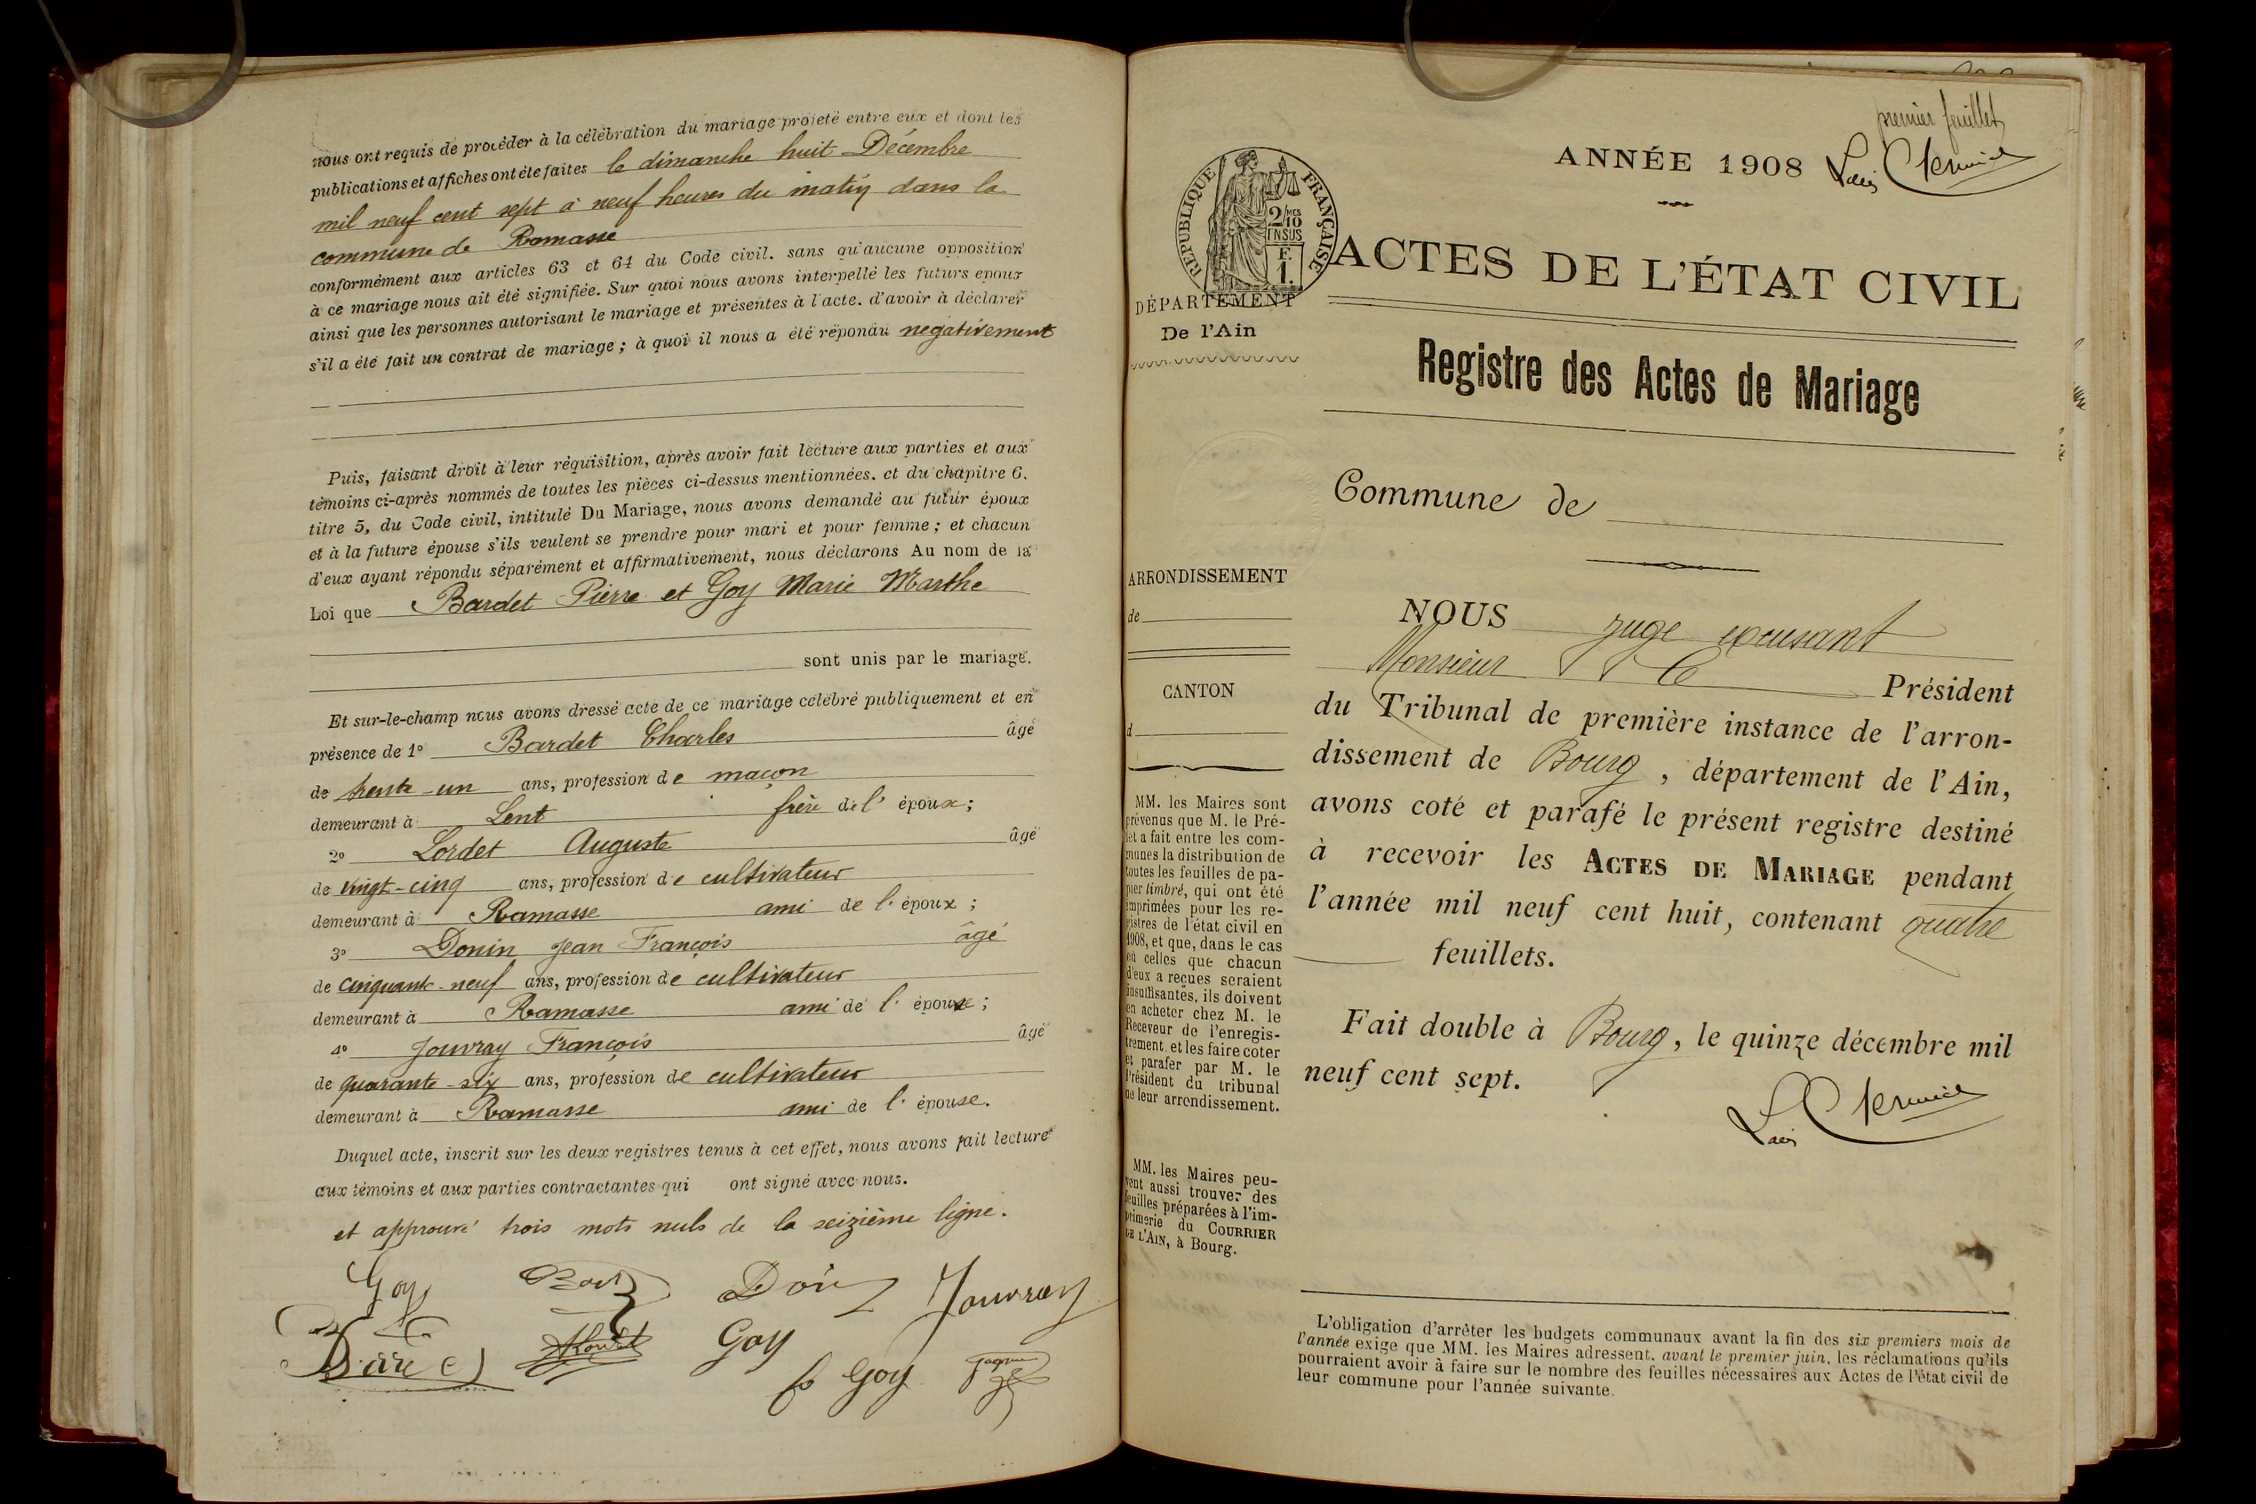 nous ont requis de procéder à la célébration du mariage projeté entre eux et dont les
publications et affiches ont été faites le dimanche huit Décembre
mil neuf cent sept à neuf heures du matin dans la
commune de Ramasse
conformément aux articles 63 et 64 du Code civil. sans qu'aucune opposition
à ce mariage nous ait été signifiée. Sur quoi nous avons interpellé les futurs epoux
ainsi que les personnes autorisant le mariage et présentes à l'acte. d'avoir à déclarer
s'il a été fait un contrat de mariage ; à quoi il nous a été répondu negativement
Puis, faisant droit à leur réquisition, après avoir fait lecture aux parties et aux
témoins ci-après nommés de toutes les pièces ci-dessus mentionnées. et du chapitre 6.
titre 5, du Code civil, intitulé Du Mariage, nous avons demandé au futur époux
et à la future épouse s'ils veulent se prendre pour mari et pour femme ; et chacun
d'eux ayant répondu séparément et affirmativement, nous déclarons Au nom de la
Loi que Bardet Pierre et Goy Marie Marthe
sont unis par le mariage.
Et sur-le-champ nous avons dressé acte de ce mariage célébré publiquement et en
présence de 1° Bardet Charles âgé
de trente-un ans, profession de maçon
demeurant à Lent frère de l' époux ;
2° Lordet Auguste âgé
de vingt-cinq ans, profession de cultivateur
demeurant à Ramasse ami de l' époux ;
3° Donin Jean François âgé
de cinquante-neuf ans, profession de cultivateur
demeurant à Ramasse ami de l' épouse ;
4° Jouvray François âgé
de quarante-six ans, profession de cultivateur
demeurant à Ramasse ami de l' épouse.
Duquel acte, inscrit sur les deux registres tenus à cet effet, nous avons fait lecture
aux témoins et aux parties contractantes qui ont signé avec nous.
et approuvé trois mots nuls de la seizième ligne.
Goy Jouvray
Goy
Goy
premier feuillet
ANNÉE 1908
RÉPUBLIQUE FRANÇAISE
2/10 MES
EN SUS
F.
1.
ACTES DE L'ÉTAT CIVIL
DÉPARTEMENT
De l'Ain
Registre des Actes de Mariage
Commune de
ARRONDISSEMENT
de
CANTON
d
MM. les Maires sont
prévenus que M. le Pré-
fet a fait entre les com-
munes la distribution de
toutes les feuilles de pa-
pier timbré, qui ont été
imprimées pour les re-
gistres de l'état civil en
1908, et que, dans le cas
où celles que chacun
d'eux a reçues seraient
insuffisantes, ils doivent
en acheter chez M. le
Receveur de l'enregis-
trement et les faire coter
et parafer par M. le
Président du tribunal
de leur arrondissement.
MM. les Maires peu-
vent aussi trouver des
feuilles préparées à l'im-
primerie du COURRIER
DE L'AIN, à Bourg.
NOUS Juge excusant
Monsieur le Président
du Tribunal de première instance de l'arron-
dissement de Bourg, département de l'Ain,
avons coté et parafé le présent registre destiné
à recevoir les ACTES DE MARIAGE pendant
l'année mil neuf cent huit, contenant quatre
feuillets.
Fait double à Bourg, le quinze décembre mil
neuf cent sept.
L'obligation d'arrêter les budgets communaux avant la fin des six premiers mois de
l'année exige que MM. les Maires adressent, avant le premier juin, les réclamations qu'ils
pourraient avoir à faire sur le nombre des feuilles nécessaires aux Actes de l'état civil de
leur commune pour l'année suivante.